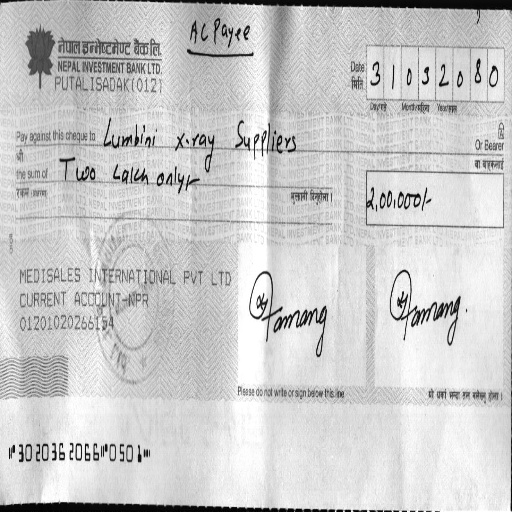 A/C Payee
नेपाल इन्भेष्टमेण्ट बैंक लि.
NEPAL INVESTMENT BANK LTD.
PUTALISADAK(012)
Date
मिति
3 1 0 3 2 0 8 0
Day/गते Month/महिना Year/साल
Pay against this cheque to Lumbini x-ray Suppliers
Or Bearer
श्री
वा वाहकलाई
the sum of Two Lakh only/-
भुक्तानी दिनुहोला ।
2,00,000/-
MEDISALES INTERNATIONAL PVT LTD
CURRENT ACCOUNT-NPR
01201020266154
Tamang Tamang.
Please do not write or sign below this line
⑈302036 2066⑈0501⑈